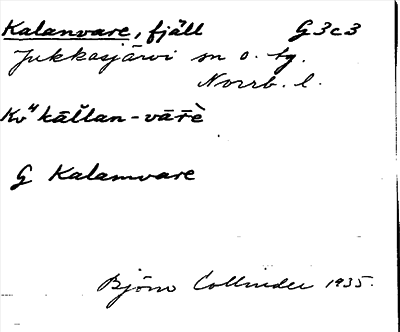 Kalanvare, fjäll G3c3
Jukkasjärvi sn o. tg.
Norrb. l.
Kv" kāllan-vār̄è
G Kalamvare
Björn Collinder 1935.